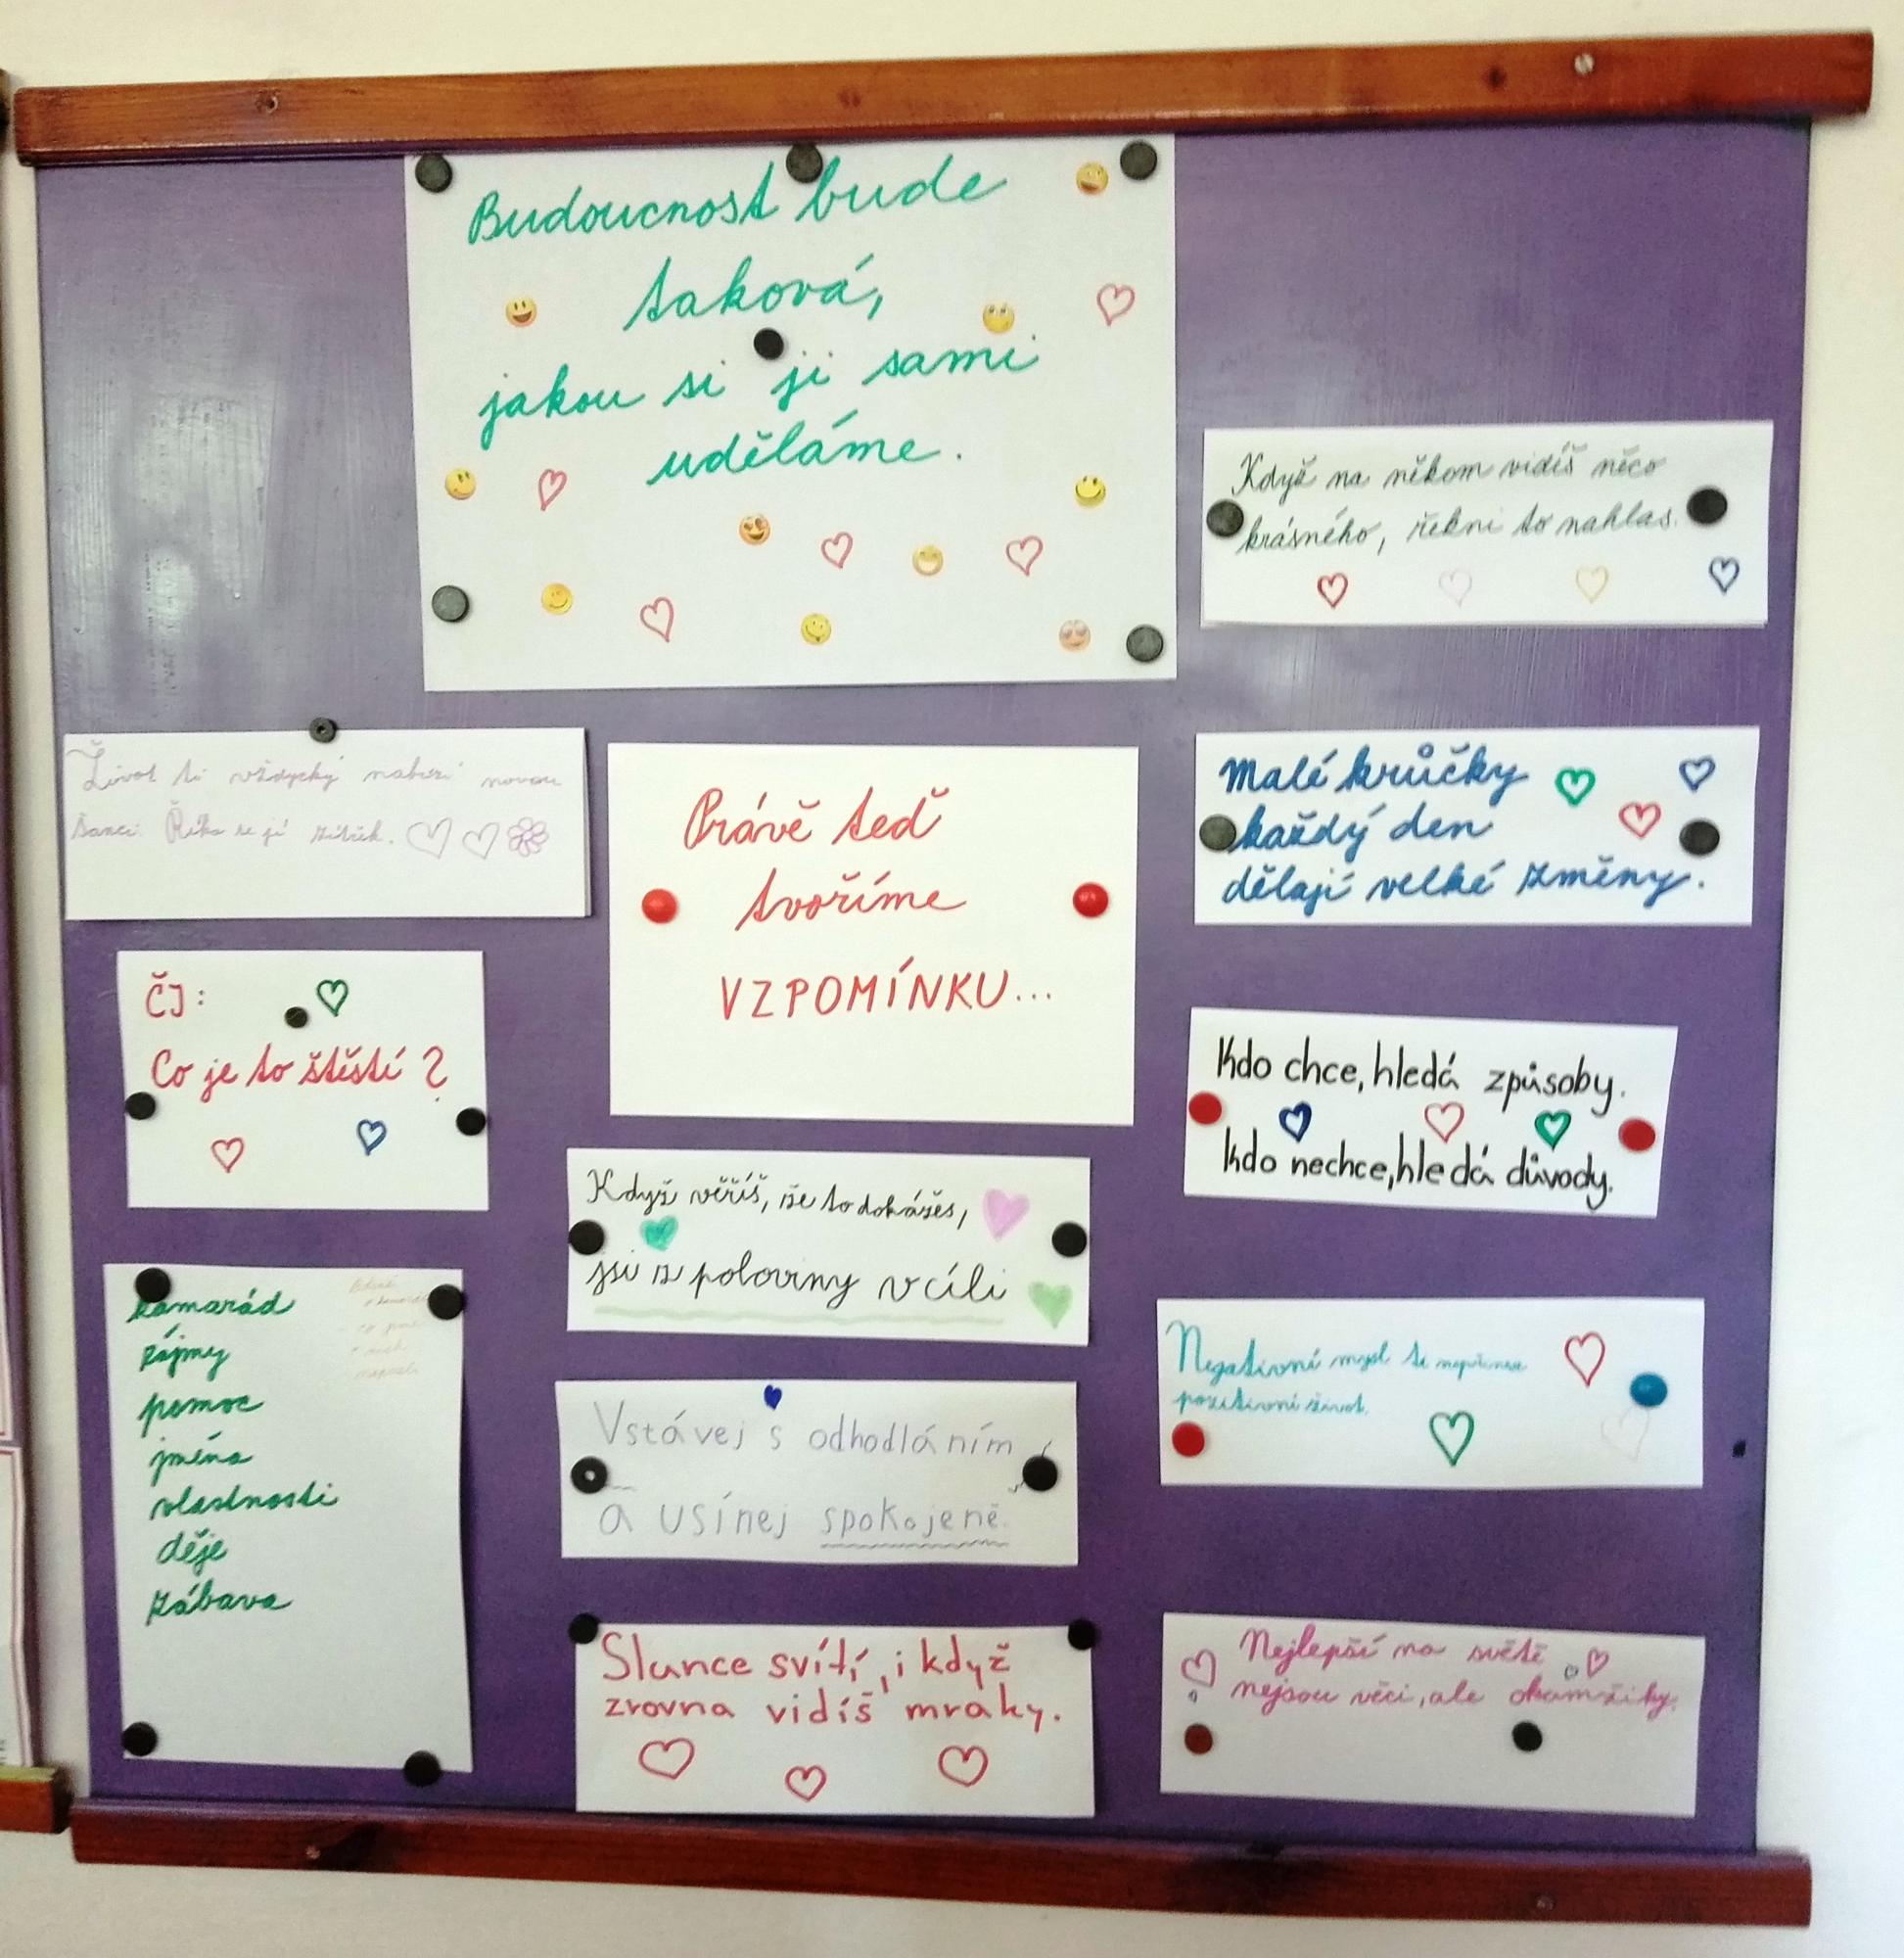 Budoucnost bude
taková,
jakou si ji sami
uděláme.
Když na někom vidíš něco
krásného, řekni to nahlas.
Život ti vždycky nabízí novou
šanci. Říká se jí zítřek.
Právě teď
tvoříme
VZPOMÍNKU...
Malé krůčky
každý den
dělají velké změny.
ČJ:
Co je to štěstí?
Kdo chce, hledá způsoby.
Kdo nechce, hledá důvody.
Když věříš, že to dokážeš,
jsi z poloviny v cíli
kamarád
zájmy
pomoc
jména
vlastnosti
děje
zábava
Negativní mysl ti nepřinese
pozitivní život.
Vstávej s odhodláním
a usínej spokojeně.
Slunce svítí, i když
zrovna vidíš mraky.
Nejlepší na světě
nejsou věci, ale okamžiky.